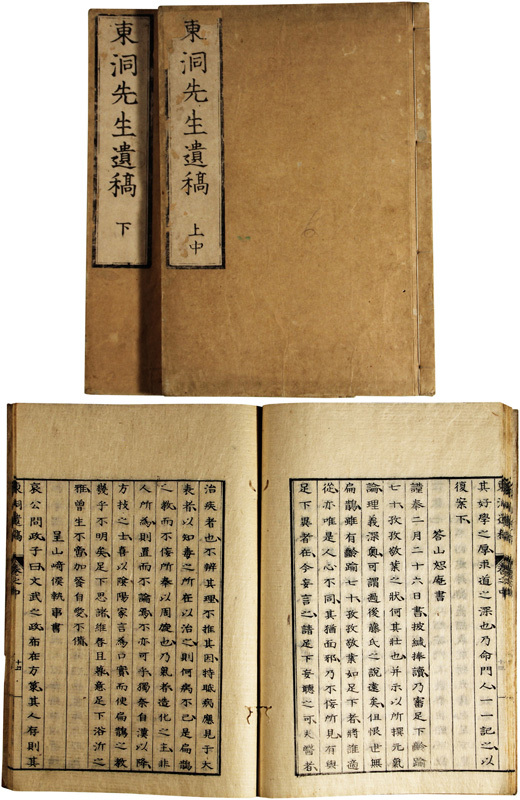 東洞先生遺稿 上中
東洞先生遺稿 下
東洞遺稿 卷之中
其好學之厚求道之深也乃命門人一一記之以
復案下
答山恕庵書
謹奉二月二十六日書披緘捧讀乃審足下齡踰
七十孜孜敬業之狀何其壯也并示以所撰元氣
論理義深奧可謂過後藤氏之說遠矣但恨世無
扁鵲雖有齡踰七十孜孜敬業如足下者將誰適
從亦唯是人心不同其猶面邪乃不佞所見有與
足下異者在今妄言之諸足下妄聽之可夫醫者
治疾者也不辨其理不推其因特眡病應見于大
表者以知毒之所在以治之則何病不已是扁鵲
之教而不佞所奉以周旋也乃氣者造化之主非
人所為則置而不論焉不亦可乎獨奈自漢以降
方技之士喜以陰陽家言為口實而使扁鵲之教
幾乎不明矣足下思諸維春且暮意足下浴沂之
雅曾生不啻加餐自愛不備
呈山崎侯執事書
哀公問政子曰文武之政布在方策其人存則其
東洞遺稿 卷之中 十二